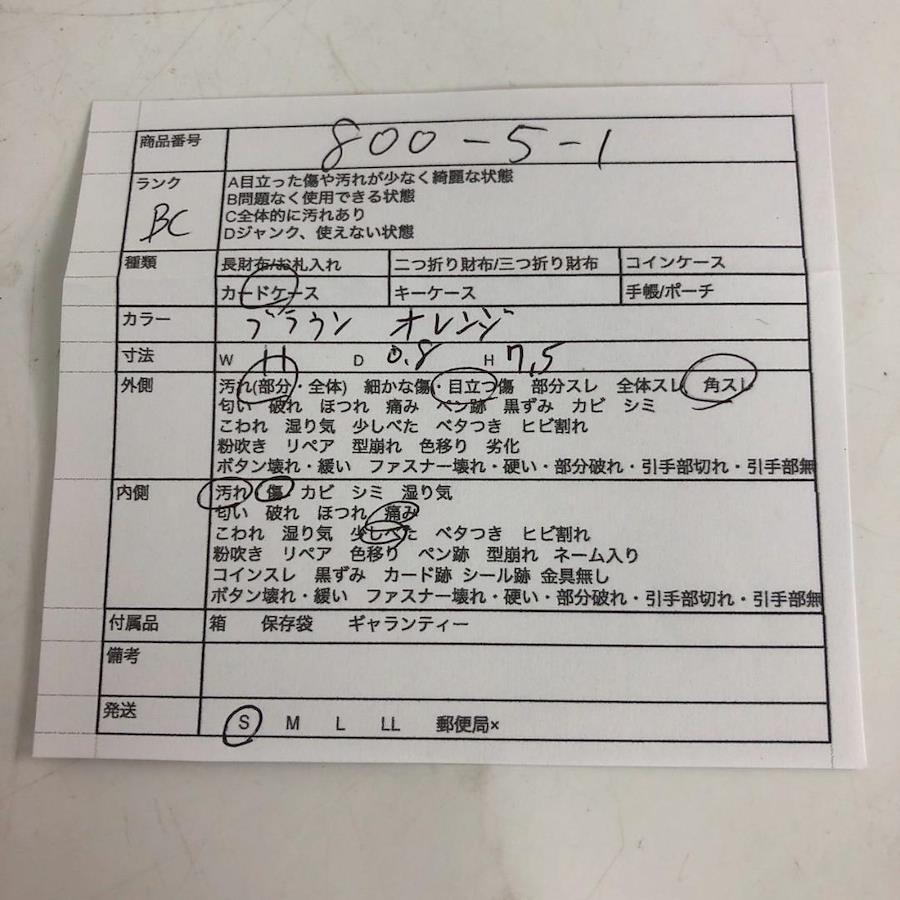 商品番号 800-5-1
ランク BC
A目立った傷や汚れが少なく綺麗な状態
B問題なく使用できる状態
C全体的に汚れあり
Dジャンク、使えない状態
種類 長財布/お札入れ 二つ折り財布/三つ折り財布 コインケース
カードケース キーケース 手帳/ポーチ
カラー ブラウン オレンジ
寸法 W 11 D 0.8 H 7.5
外側 汚れ(部分・全体) 細かな傷・目立つ傷 部分スレ 全体スレ 角スレ
匂い 破れ ほつれ 痛み ペン跡 黒ずみ カビ シミ
こわれ 湿り気 少しべた ベタつき ヒビ割れ
粉吹き リペア 型崩れ 色移り 劣化
ボタン壊れ・緩い ファスナー壊れ・硬い・部分破れ・引手部切れ・引手部無
内側 汚れ 傷 カビ シミ 湿り気
匂い 破れ ほつれ 痛み
こわれ 湿り気 少しべた ベタつき ヒビ割れ
粉吹き リペア 色移り ペン跡 型崩れ ネーム入り
コインスレ 黒ずみ カード跡 シール跡 金具無し
ボタン壊れ・緩い ファスナー壊れ・硬い・部分破れ・引手部切れ・引手部無
付属品 箱 保存袋 ギャランティー
備考
発送 S M L LL 郵便局×